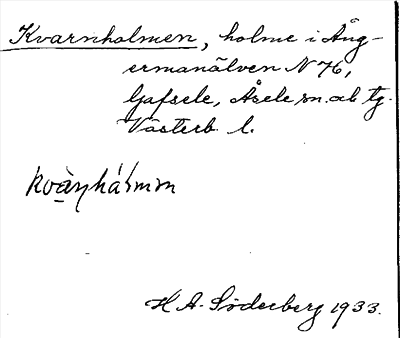 Kvarnholmen, holme i Ång-
ermanälven N 76,
Gafsele, Åsele
Västerb. l.
kvàṇhálmm
H A. Söderberg 1933.